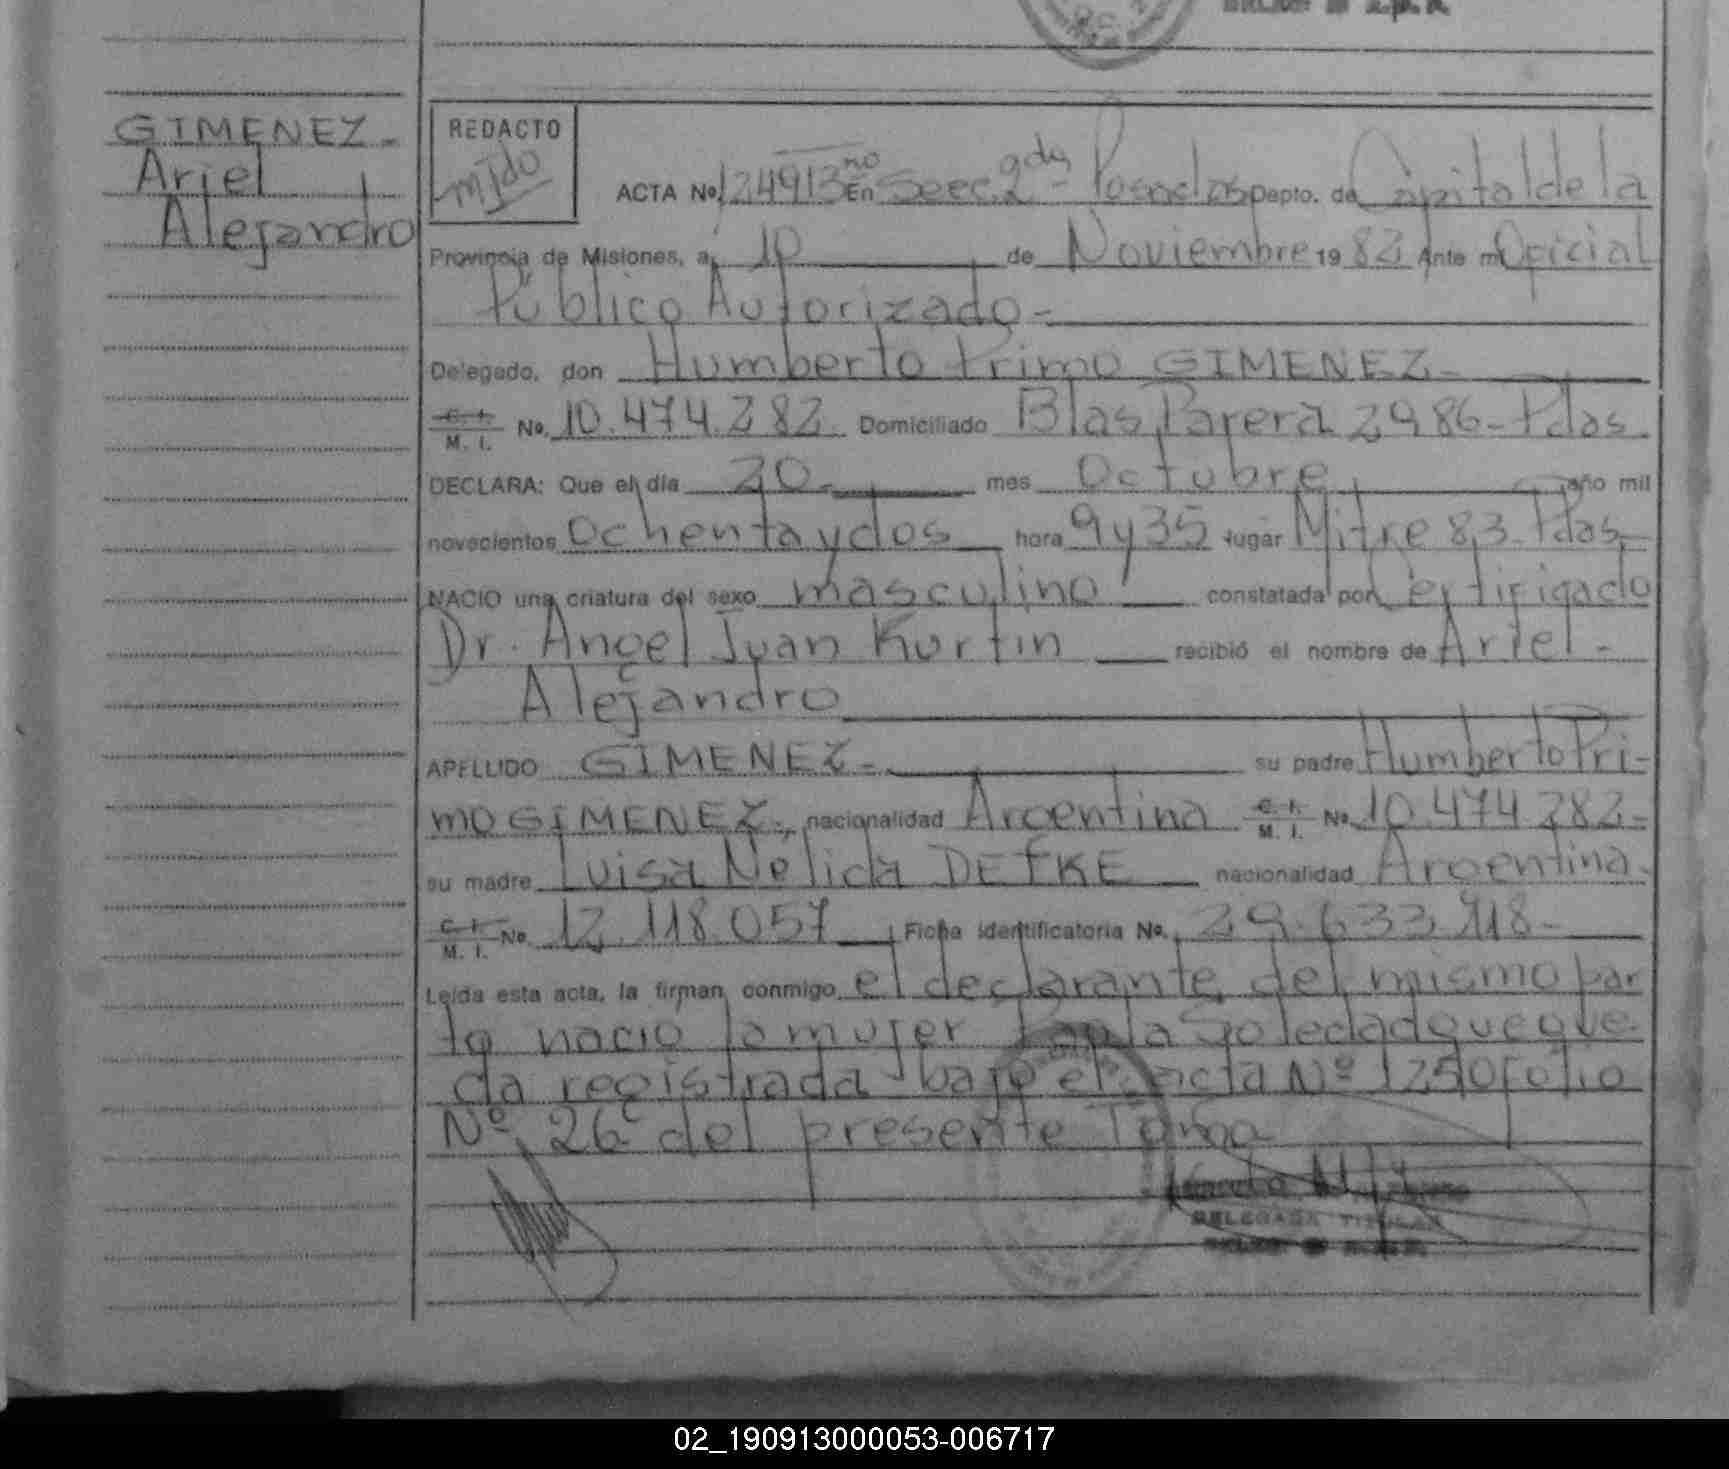 GIMENEZ-
Ariel
Alejandro
REDACTO
ACTA No. En Secc. 2da - Posadas Depto. de Capital de la
Provincia de Misiones, a 10 de Noviembre 19 82 Ante mi Oficial
Público Autorizado-
Delegado, don Humberto Primo GIMENEZ-
C. I.
M. I. No. 10.474.282 Domiciliado Blas Parera 2986- Pdas.
DECLARA: Que el día 20- mes Octubre año mil
novecientos Ochenta y dos hora 9 y 35 lugar Mitre 83- Pdas-
NACIO una criatura del sexo masculino constatada por Certificado
Dr. Angel Juan Kurtin recibió el nombre de Ariel-
Alejandro
APELLIDO GIMENEZ- su padre Humberto Pri-
mo GIMENEZ-, nacionalidad Argentina C. I.
M. I. No. 10.474.282-
su madre Luisa Nélida DEFKE nacionalidad Argentina-
C. I.
M. I. No. 12.118.057 Ficha identificatoria No. 29.633.118-
Leída esta acta, la firman conmigo, el declarante, del mismo par
to nació la mujer Paula Soledad que que
da registrada bajo el acta Nº 1250 folio
Nº 26 del presente Tomo
DELEGADA TITULAR
02_190913000053-006717